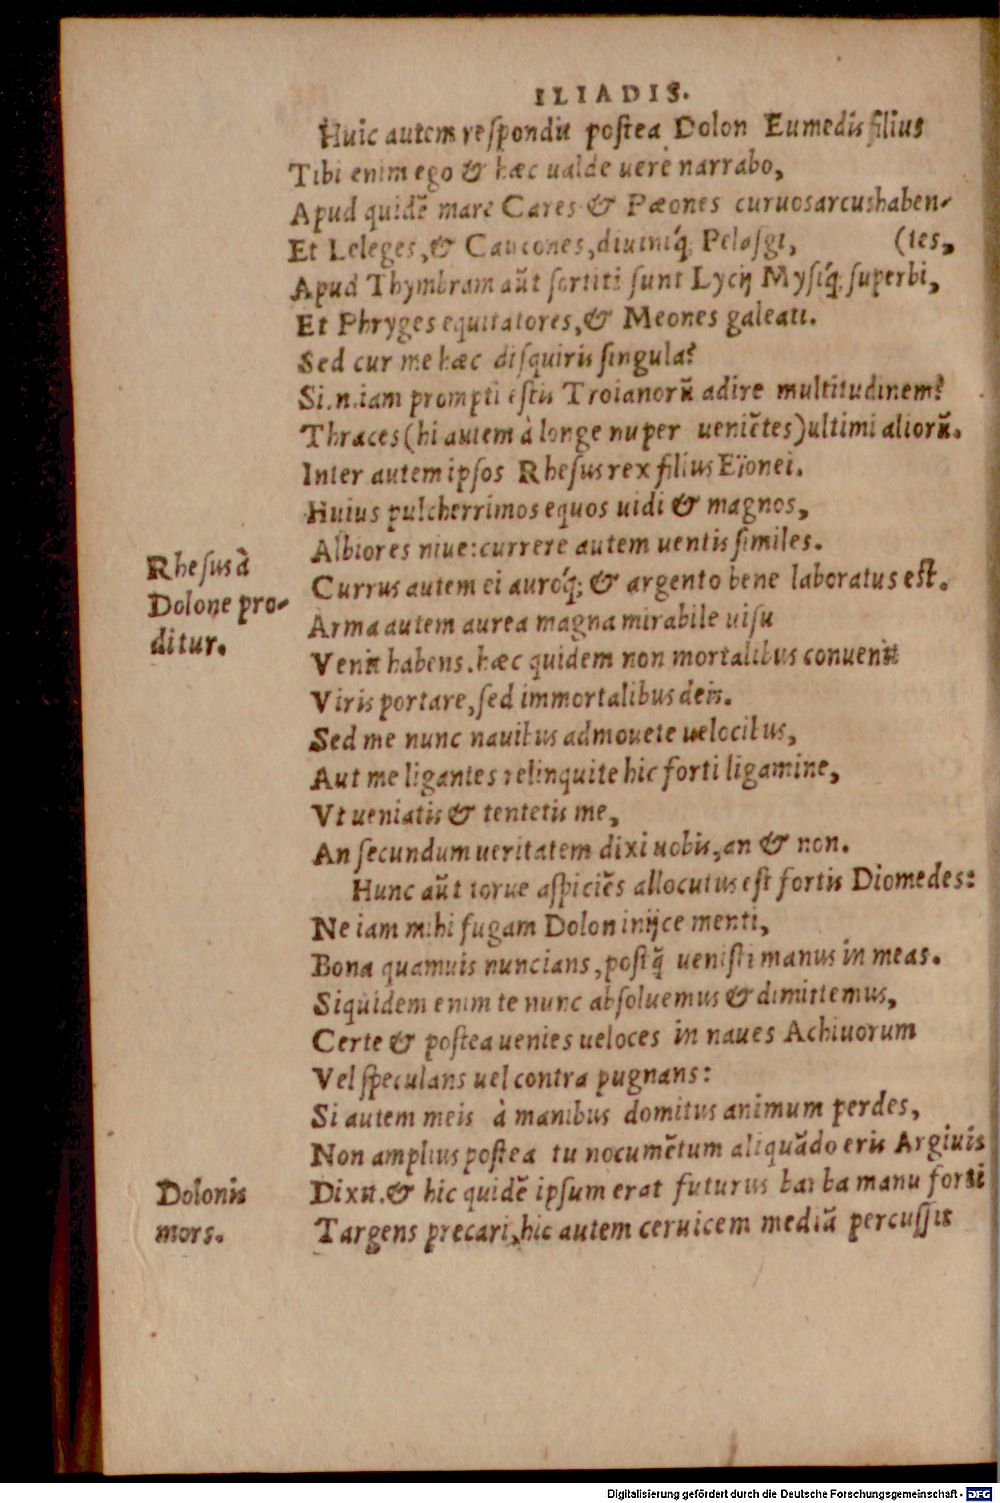 ILIADIS.
Huic autem respondit postea Dolon Eumedis filius
Tibi enim ego & hæc ualde uerè narrabo,
Apud quidẽ mare Cares & Pæones curuosarcushaben-
Et Leleges, & Caucones, diuiniq́; Pelasgi, (tes,
Apud Thymbram aũt sortiti sunt Lycij Mysiq́; superbi,
Et Phryges equitatores, & Meones galeati.
Sed cur me hæc disquiris singula?
Si.n.iam prompti estis Troianorũ adire multitudinem?
Thraces (hi autem à longe nuper ueniẽtes) ultimi aliorũ.
Inter autem ipsos Rhesus rex filius Eïonei.
Huius pulcherrimos equos uidi & magnos,
Albiores niue: currere autem uentis similes.
Currus autem ei auroq́; & argento bene laboratus est.
Arma autem aurea magna mirabile uisu
Venit habens. hæc quidem non mortalibus conuenit
Viris portare, sed immortalibus deis.
Sed me nunc nauibus admouete uelocibus,
Aut me ligantes relinquite hic forti ligamine,
Vt ueniatis & tentetis me,
An secundum ueritatem dixi uobis, an & non.
Hunc aũt torue aspiciẽs allocutus est fortis Diomedes:
Ne iam mihi fugam Dolon inijce menti,
Bona quamuis nuncians, postq̃ uenisti manus in meas.
Siquidem enim te nunc absoluemus & dimittemus,
Certe & postea uenies ueloces in naues Achiuorum
Vel speculans uel contra pugnans:
Si autem meis à manibus domitus animum perdes,
Non amplius postea tu nocumẽtum aliquãdo eris Argiuis
Dixit. & hic quidẽ ipsum erat futurus barba manu forti
Targens precari, hic autem ceruicem mediã percussit
Rhesus à
Dolone pro-
ditur.
Dolonis
mors.
Digitalisierung gefördert durch die Deutsche Forschungsgemeinschaft - DFG